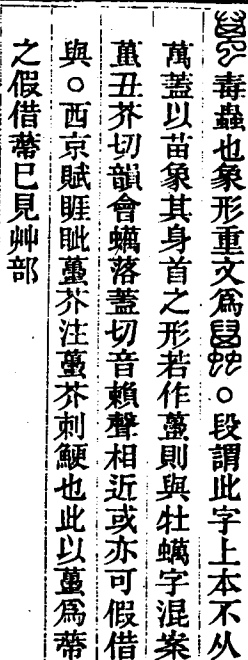 毒蟲也象形重文爲○段謂此字上本不从
萬蓋以苗象其身首之形若作蠆則與牡蠣字混案
蠆丑芥切韻會蠣落蓋切音賴聲相近或亦可假借
與○西京賦睚眦蠆芥注蠆芥刺鯁也此以蠆爲蔕
之假借蔕已見艸部